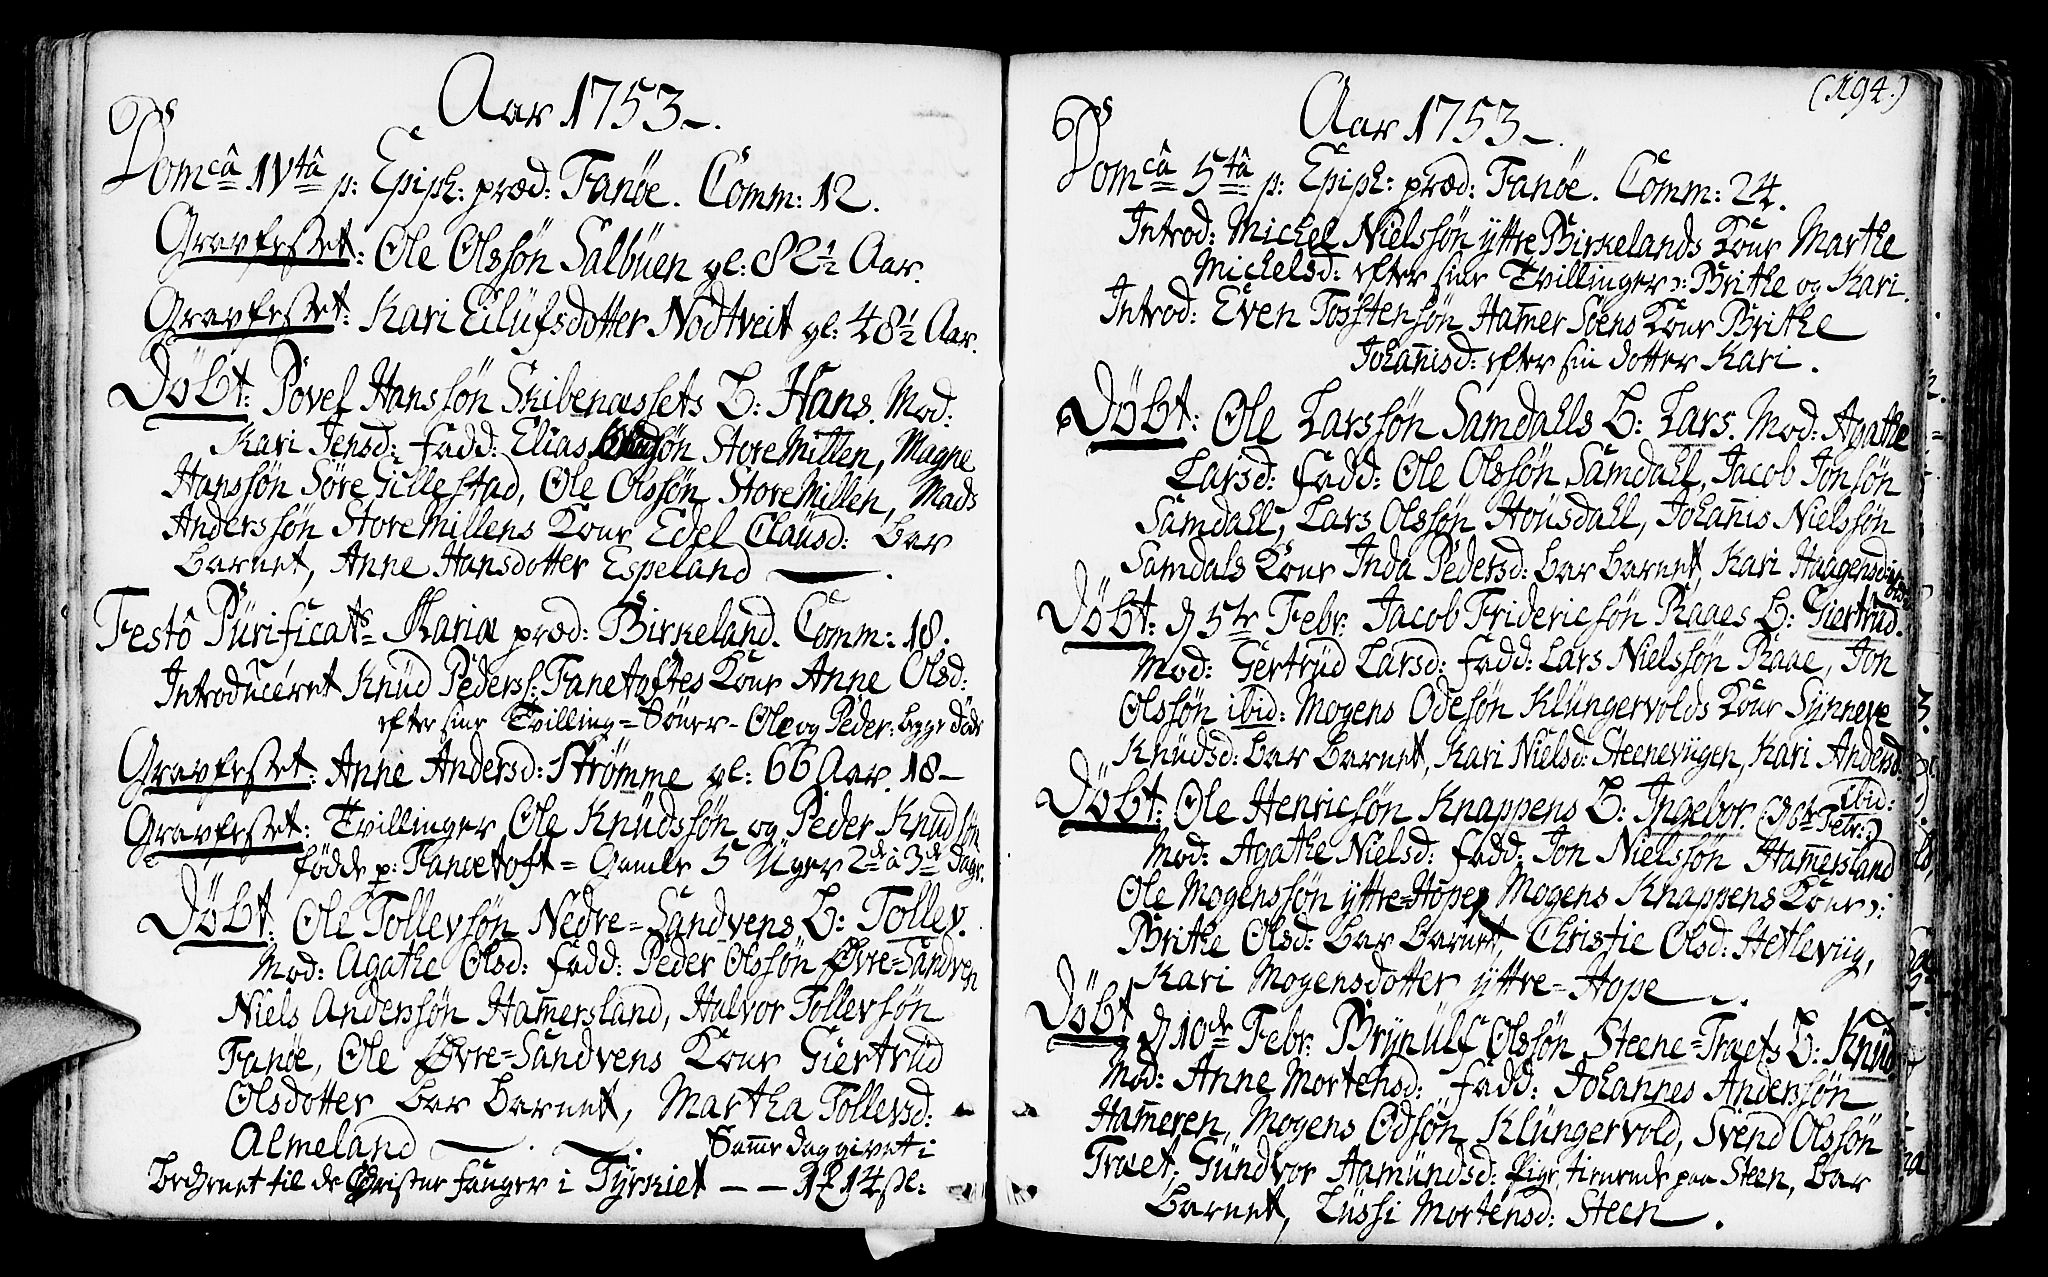 Aar 1753 –.
Domcâ IVtâ p: Epiph: præd: Fanöe. Comm: 12.
Gravfestet: Ole Olssön Salbüen gl: 82½ Aar.
Gravfestet: Kari Eilüfsdotter Nodtveit gl: 48½ Aar.
Döbt: Povel Hanssön Skibenæssets B: Hans. Mod:
Kari Jensd: fadd: Elias sön Store Millen, Magne
Hanssön Söre Gillestad, Ole Olssön Store Millen, Mads
Anderssön Store Millens Kone Edel Claüsd: bar
Barnet, Anne Hansdotter Espeland
Festô Pürificats Mariæ præd: Birkeland. Comm: 18.
Introduceret Knüd Peders: Fanetoftes Kone Anne Olsd:
efter sine Tvilling=Sönner – Ole og Peder: begge döde
Gravfestet: Anne Andersd: Strömme gl: 66 Aar. 18 –
Gravfestet: Tvillinger Ole Knüdssön og Peder Knüdsön
födde p: Fanetoft = Gamle 5 Uger 2de à 3de dage.
Döbt: Ole Tollevsön Nedre=Sandvens B: Tollev.
Mod: Agathe Olsd: fadd: Peder Olssön Øvre=Sandven
Niels Anderssön Hamersland, Halvor Tollevsön
Fanöe, Ole Øvre=Sandvens Kone Giertrüd
Olsdotter bar Barnet, Martha Tollevsd:
Almeland. Same dag givet i
Bechenet til de Christne Fanger i Tyrkiet – – 1 14 sl:
(194.)
Aar 1753 –.
Domcâ 5tâ p: Epiph: præd: Fanöe. Comm: 24.
Introd: Michel Nielssön yttre Birkelands Kone Marthe
Michelsd: efter sine Tvillinger: Brithe og Kari.
Introd: Even Tosstensön Hamer Söens Kone Brithe
Johanisd: efter sin dotter Kari.
Döbt: Ole Larssön Samdahls B: Lars. Mod: Agathe
Larsd: fadd: Ole Olssön Samdahl, Jacob Jonsön
Samdahl, Lars Olssön Housdahl, Johanis Nielssön
Samdals Kone Inda Pedersd: bar barnet, Kari Haagensd:
Döbt: d 5te Febr: Jacob Fridericsön Raaes B: Giertrüd.
Mod: Gertrüd Larsd: fadd: Lars Nielssön Raae, Jon
Olssön ibid: Mogens Odesön Klüngervolds Kone Synneve
Knüdsd: bar Barnet, Kari Nielsd: Steeneviigen, Kari Andersd:
ibid:
Döbt: Ole Henricsön Knappens B: Ingebor. (d 6te Febr:)
Mod: Agathe Nielsd: fadd: Jon Nielssön Hamersland
Ole Mogenssön yttre=Hope, Mogens Knappens Kone:
Brithe Olsd: bar barnet, Christie Olsd: Hetleviig,
Kari Mogensdotter yttre=Hope –.
Döbt d 10de Febr: Brynülf Olssön Steene=Træts B: Knüd
Mod: Anne Mortensd: fadd: Johannes Anderssön
Hameren, Mogens Odsön Klüngervold, Svend Olssön
Træt, Gündvor Aamündsd: Pige tienende paa Steen, bar
Barnet, Lüssi Mortensd: Steen.